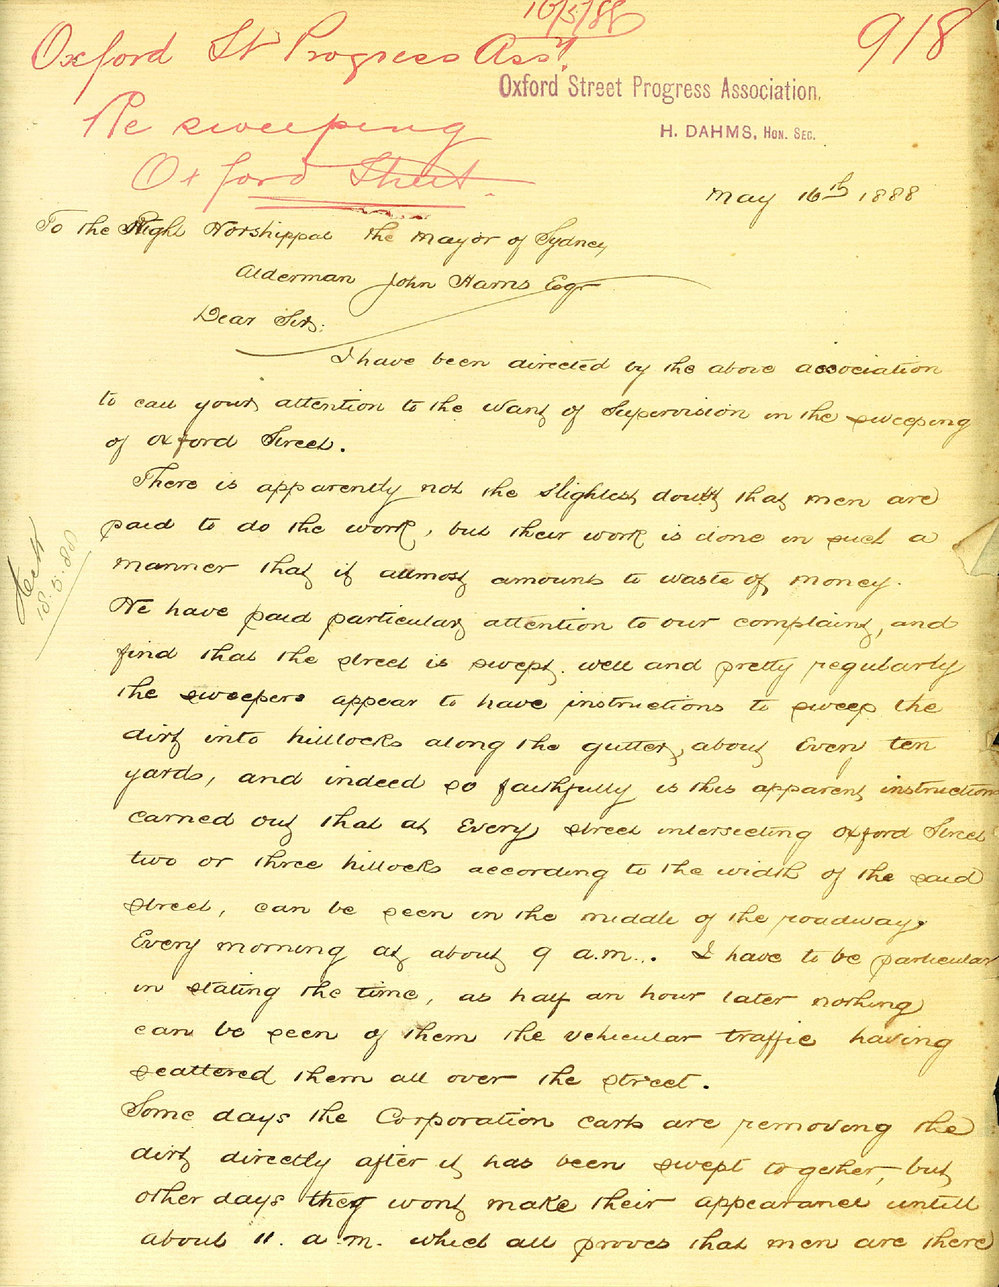 16/5/88
918
Oxford St Progress Assn.
Re sweeping
Oxford Street.
Oxford Street Progress Association.
H. DAHMS, HON. SEC.
May 16th 1888
To the Right Worshippal the Mayor of Sydney
Alderman John Harris Esqr
Dear Sir:
I have been directed by the above association
to call your attention to the want of Supervision in the sweeping
of Oxford Street.
There is apparently not the slightest doubt that men are
paid to do the work, but their work is done in such a
manner that it allmost amounts to waste of money.
We have paid particular attention to our complaint, and
find that the street is swept well and pretty regularly
the sweepers appear to have instructions to sweep the
dirt into hillocks along the gutter, about Every ten
yards, and indeed so faithfully is this apparent instruction
carried out that at Every street intersecting Oxford Street
two or three hillocks according to the width of the said
street, can be seen in the middle of the roadway.
Every morning at about 9 a.m.. I have to be particular
in stating the time, as half an hour later nothing
can be seen of them the vehicular traffic having
scattered them all over the street.
Some days the Corporation carts are removing the
dirt directly after it has been swept together, but
other days they wont make their appearance untill
about 11. a.m. which all proves that men are there
18.5.88